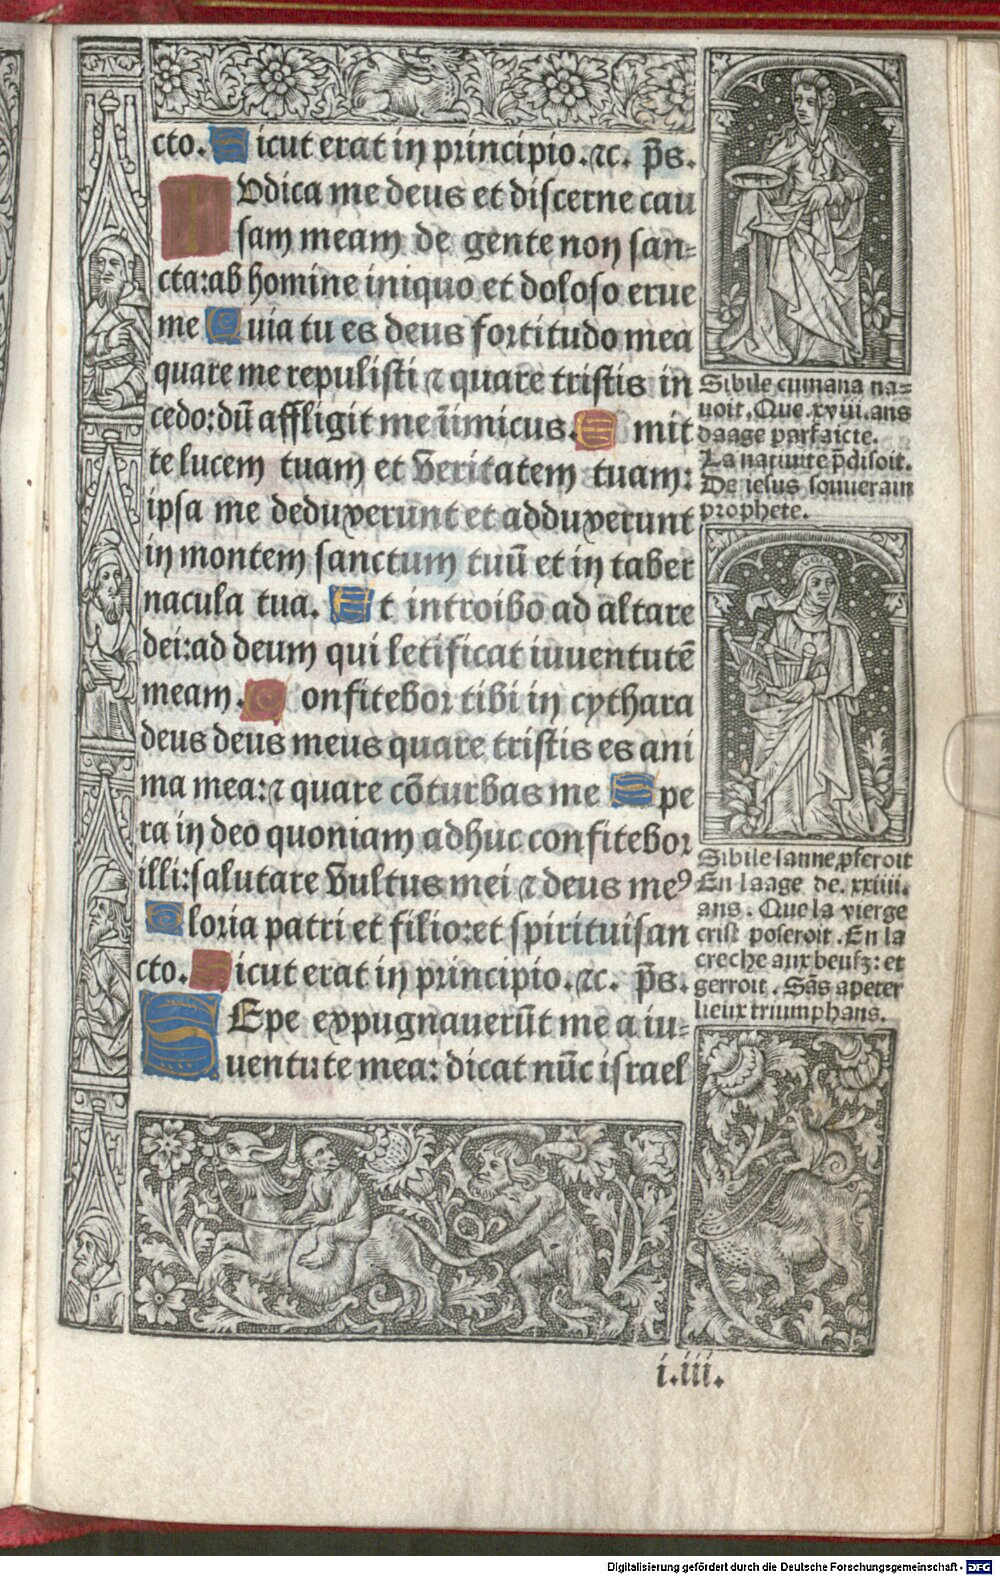 cto. Sicut erat in principio. ⁊c. p̄s.
IVdica me deus et discerne cau
sam meam de gente non san-
cta: ab homine iniquo et doloso erue
me Quia tu es deus fortitudo mea
quare me repulisti ⁊ quare tristis in
cedo: dū affligit me īimicus. Emit
te lucem tuam et veritatem tuam:
ipsa me deduxerunt et adduxerunt
in montem sanctum tuū et in taber
nacula tua. Et introibo ad altare
dei: ad deum qui letificat iuuentutē
meam. Confitebor tibi in cythara
deus deus meus quare tristis es ani
ma mea: ⁊ quare cōturbas me Spe
ra in deo quoniam adhuc confitebor
illi: salutare vultus mei ⁊ deus meꝰ
Gloria patri et filio: et spiritui san
cto. Sicut erat in principio. ⁊c. p̄s.
SEpe expugnauerūt me a iu-
uentute mea: dicat nūc israel
Sibile cumana na-
uoit. Que .xviii. ans
daage parfaicte.
La natiuite p̄disoit.
De iesus souuerain
prophete.
Sibile sanne ꝓferoit
En laage de .xxiiii.
ans. Que la vierge
crist poseroit. En la
creche aux beufz: et
gerroit. Sās apeter
lieux triumphans.
i.iii.
Digitalisierung gefördert durch die Deutsche Forschungsgemeinschaft - DFG